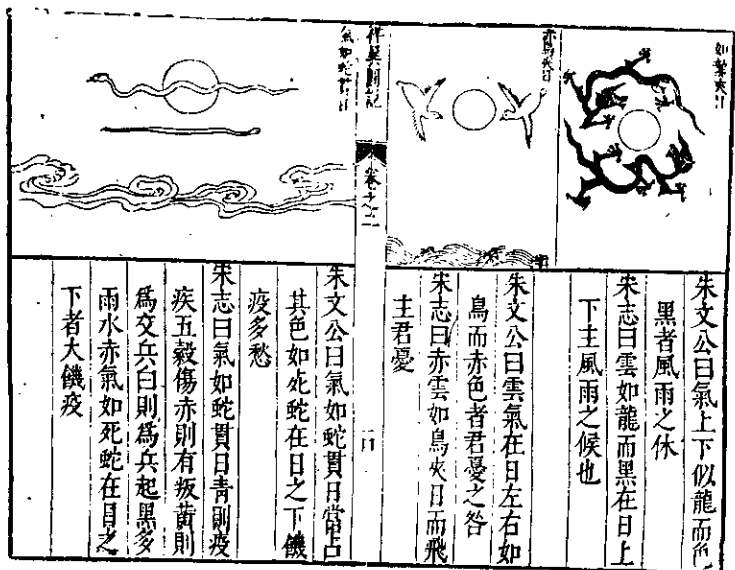 赤鳥夾日
朱文公曰氣上下似龍而色
黑者風雨之休
宋志曰雲如龍而黑在日上
下主風雨之候也
朱文公曰雲氣在日左右如
鳥而赤色者君憂之咎
宋志曰赤雲如鳥夾日而飛
主君憂
卷之二
氣如蛇貫日
朱文公曰氣如蛇貫日常占
其色如死蛇在日之下饑
疫多愁
宋志曰氣如蛇貫日青則疫
疾五穀傷赤則有叛黃則
爲交兵白則爲兵起黑多
雨水赤氣如死蛇在日之
下者大饑疫